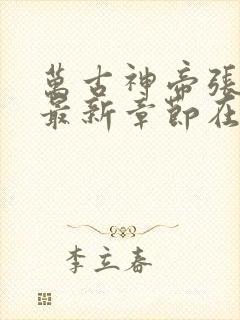 萬古神帝張
最新章節在
李立春